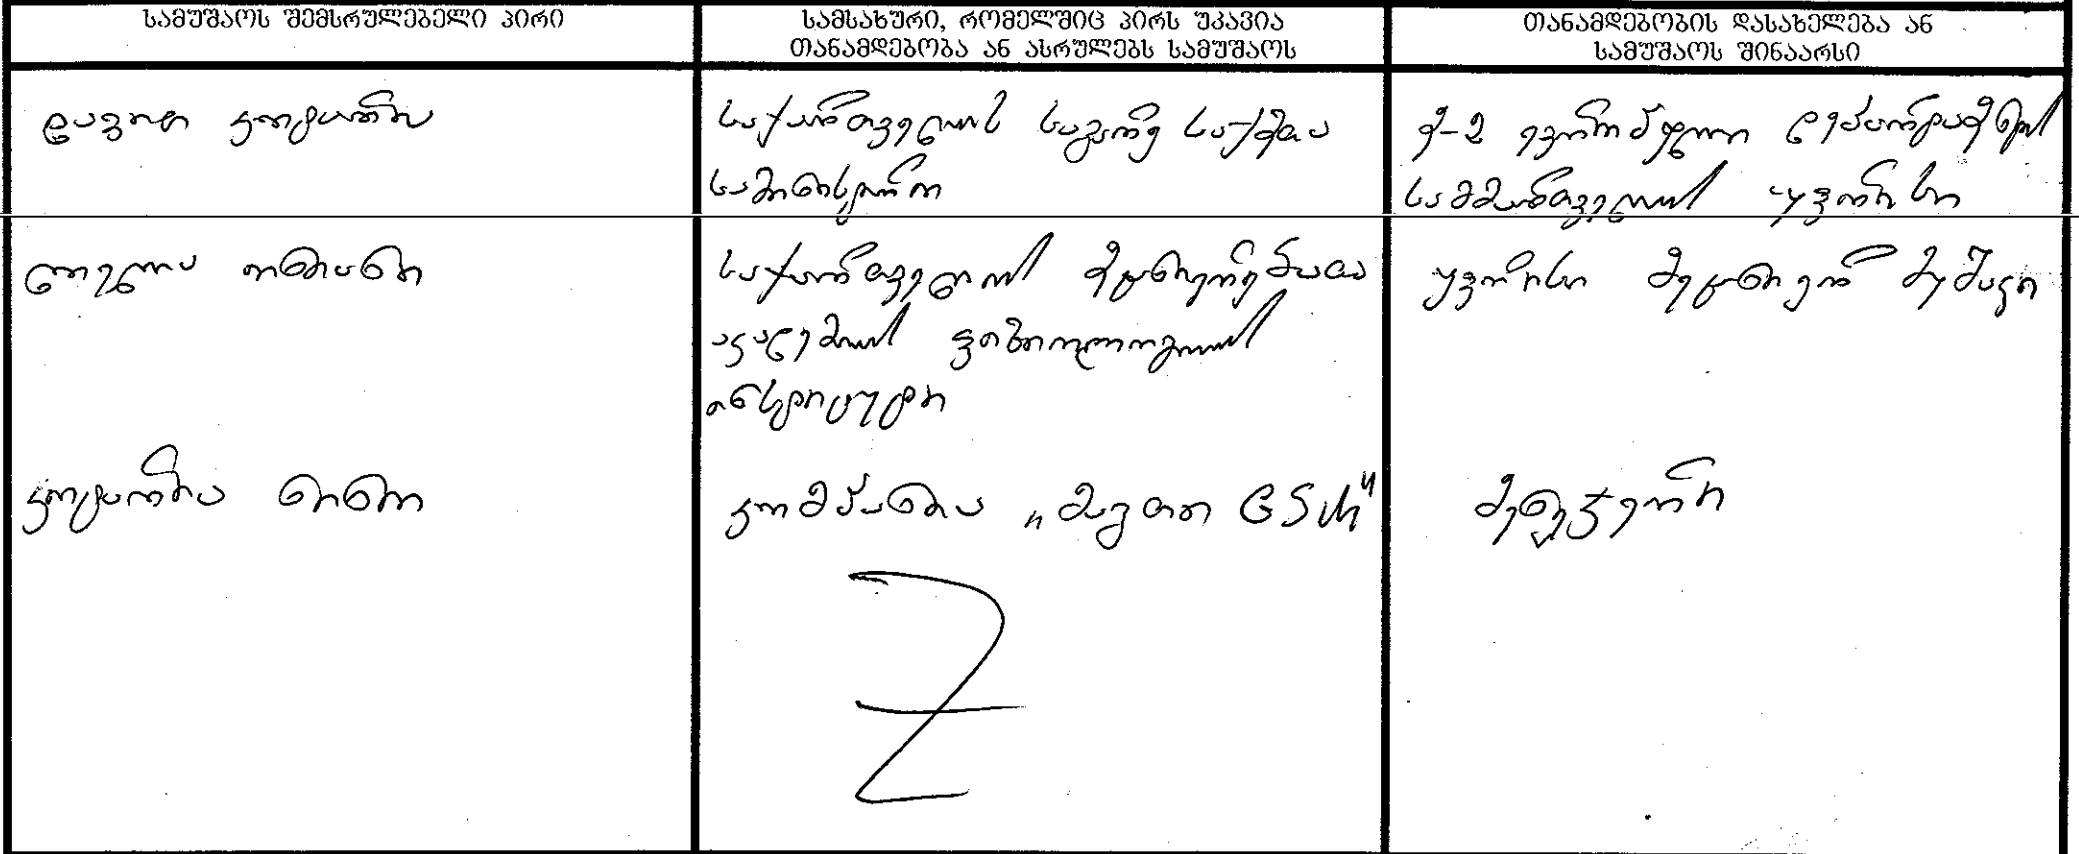 სამუშაოს შემსრულებელი პირი
სამსახური, რომელშიც პირს უკავია
თანამდებობა ან ასრულებს სამუშაოს
თანამდებობის დასახელება ან
სამუშაოს შინაარსი
დავით კოტარია
საქართველოს საგარეო საქმეთა
სამინისტრო
დეპარტამენტის
სამმართველოს უფროსი
ლელა
საქართველოს მეცნიერებათა
აკადემიის ფიზიოლოგიის
ინსტიტუტი
უფროსი მეცნიერ მუშაკი
კოტარია ნინო
კომპანია „მაგთი GSM"
მენეჯერი